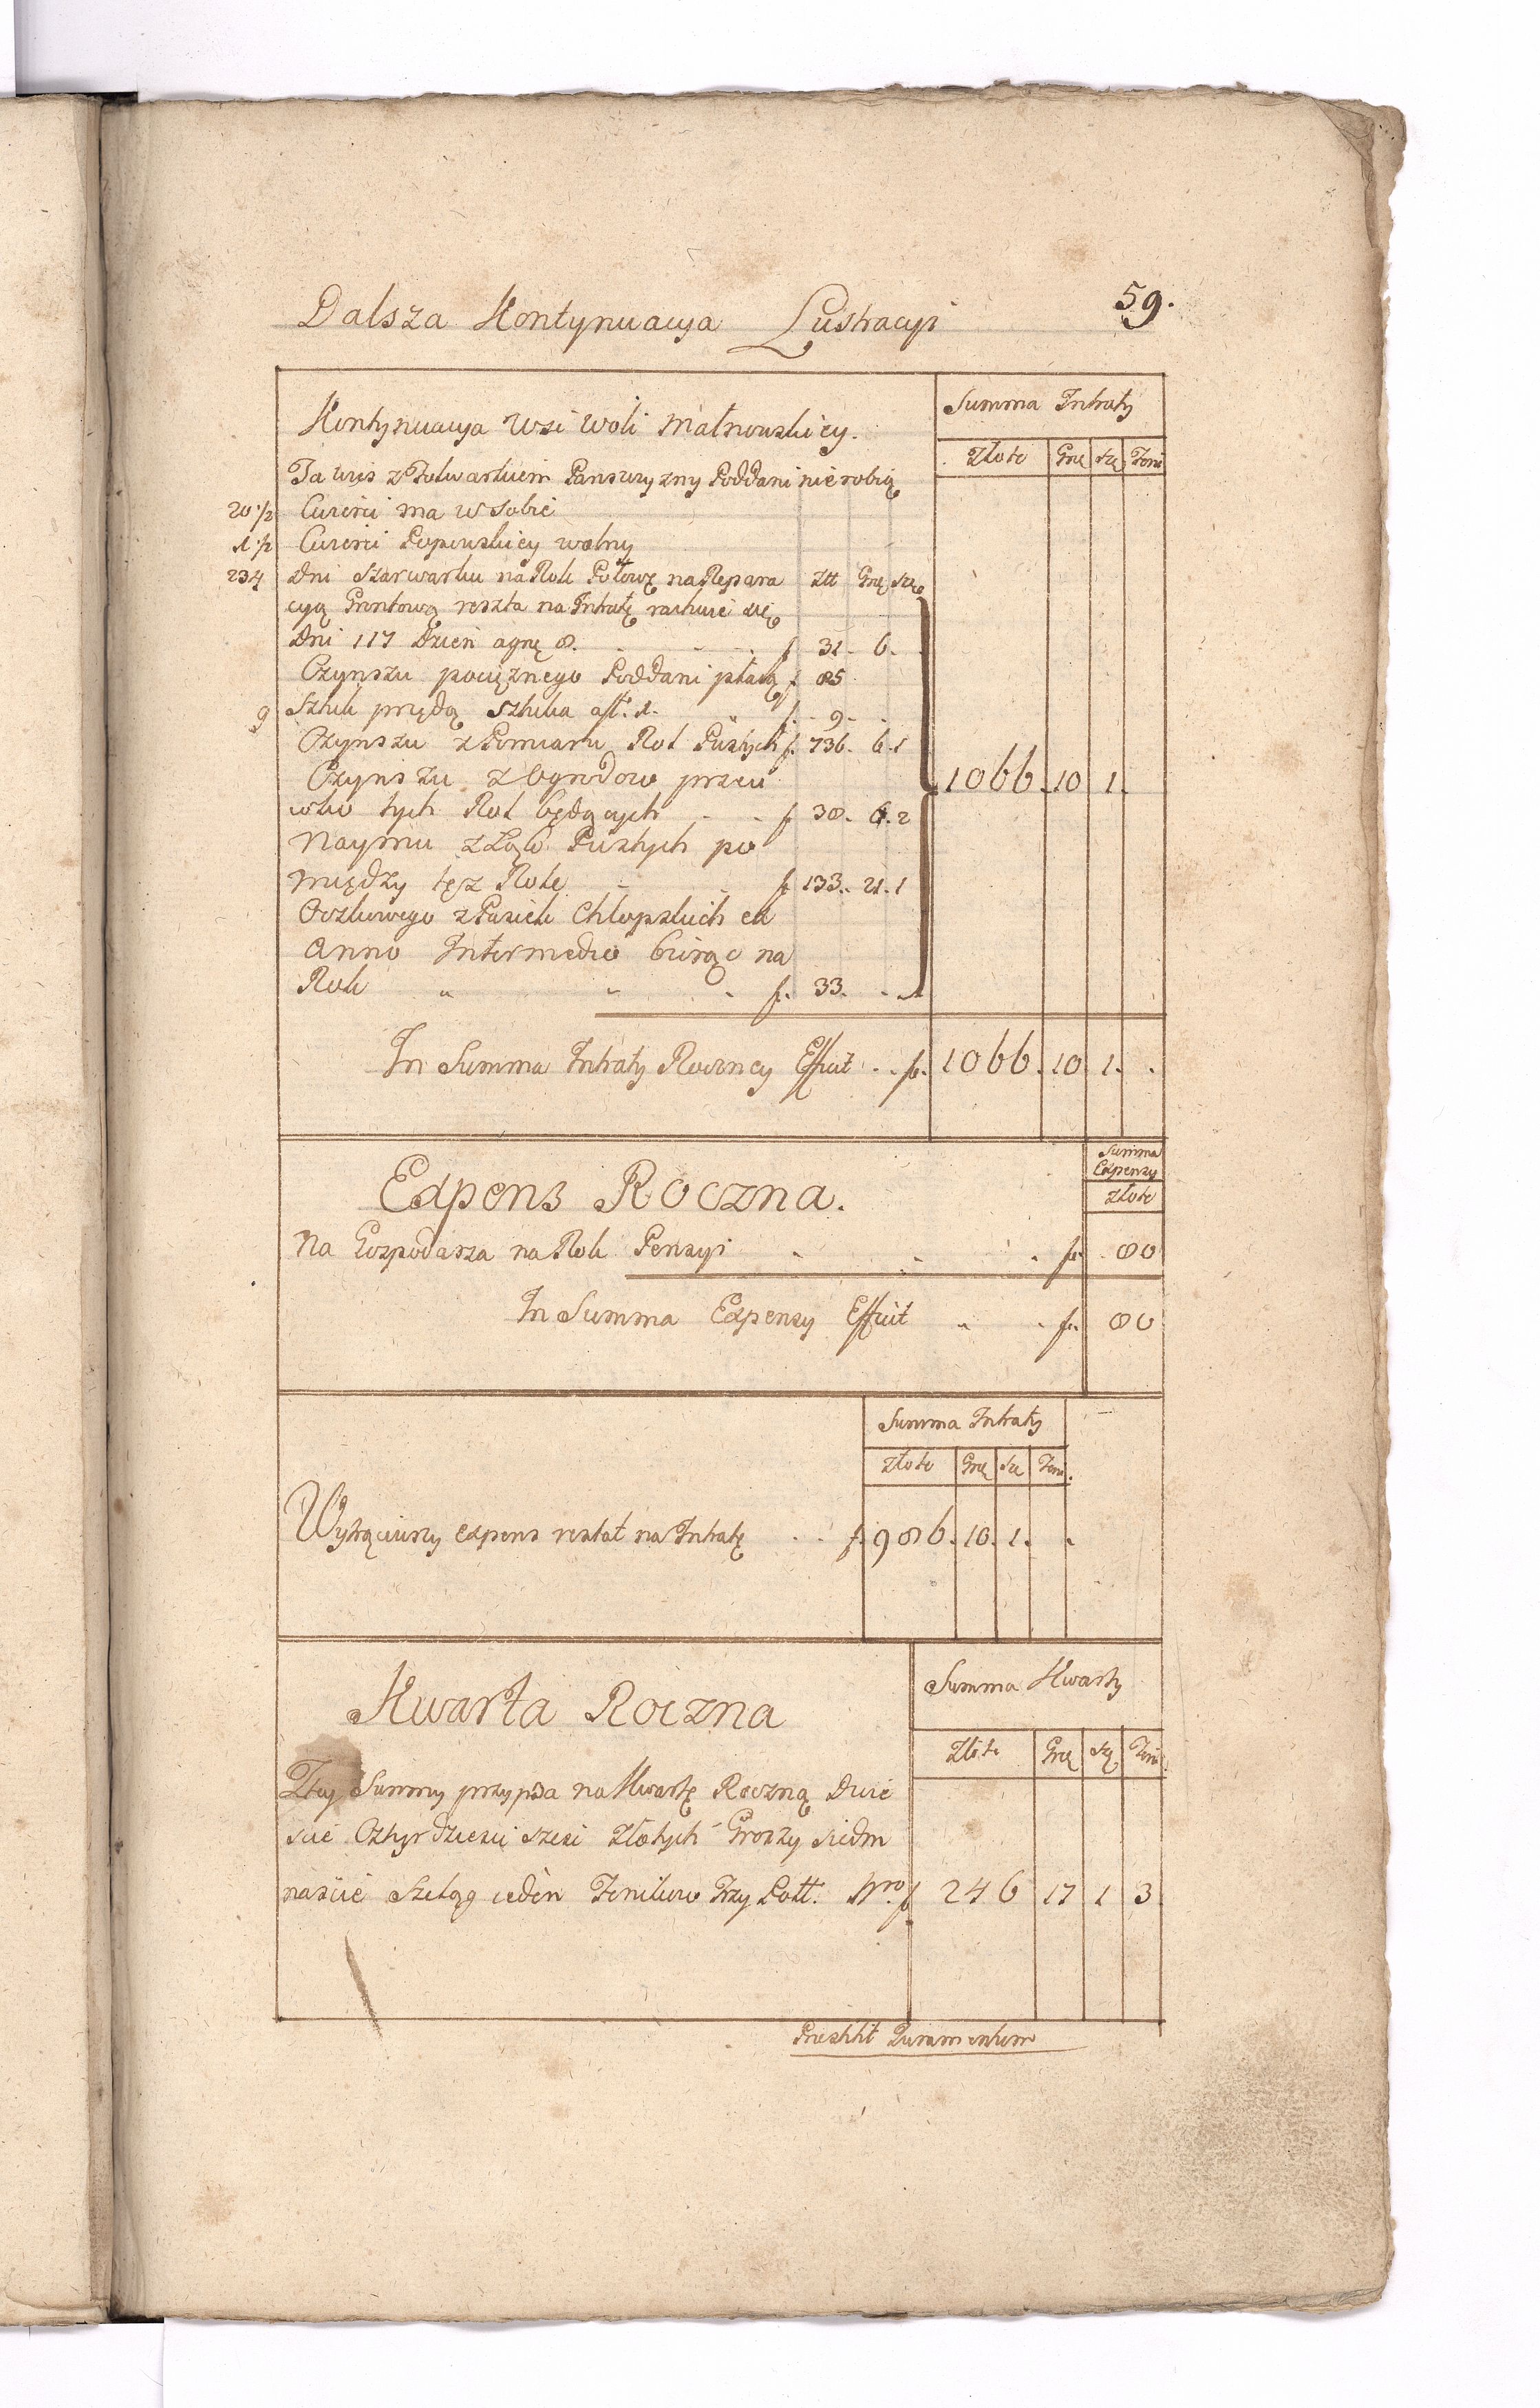 59.
Dalsza Kontynuacya Lustracyi
Kontynuacya Wsi Woli Małnowskiey.
Summa Intraty
Złote Grę Szę Feni
Ta wieś z Folwarkiem Panszczyzny Poddani nie robią
20 1/2 Cwierci ma w sobie
1 1/2 Cwierci Popowskiey wolny
234 Dni Szarwarku na Rok Połowę na Repara Złł Grę Szę
cyą Gontową reszta na Intratę rachuie się
Dni 117 Dzień a grę 8. f 31. 6.
Czynszu pociężnego Poddani płacą f 85
9 Sztuk przędą sztuka a f. 1. f. 9.
Czynszu z Pomiaru Rol Pustych f. 736. 6. 1
Czynszu z Ogrodow przeci
wko tych Rol będących f 38. 6. 2
Naymu z Łąk Pustych po
między tęż Role f 133. 21. 1
Oczkowego z Pasiek Chłopskich ex
Anno Intermedio biorąc na
Rok f. 33.
1066. 10 1.
In Summa Intraty Roczney Efficit f. 1066. 10 1. .
Expens Roczna.
Summa
Expensy
Złote
Na Gospodarza na Rok Pensyi f. 80
In Summa Expensy Efficit f. 80
Summa Intraty
Złote Grę Szę Feni.
Wytrąciwszy expens restat na Intratę f. 986. 10. 1. .
Kwarta Roczna
Summa Kwarty
Złote Grę Szę Feni
Ztey Summy przypda na Kwartę Roczną Dwie
scie Cztyrdziesci szesc Złotych Groszy siedm
nascie Szeląg ieden Fenikow Trzy Poll. Nro. f 246 17 1 3
Praestitit Juramentum